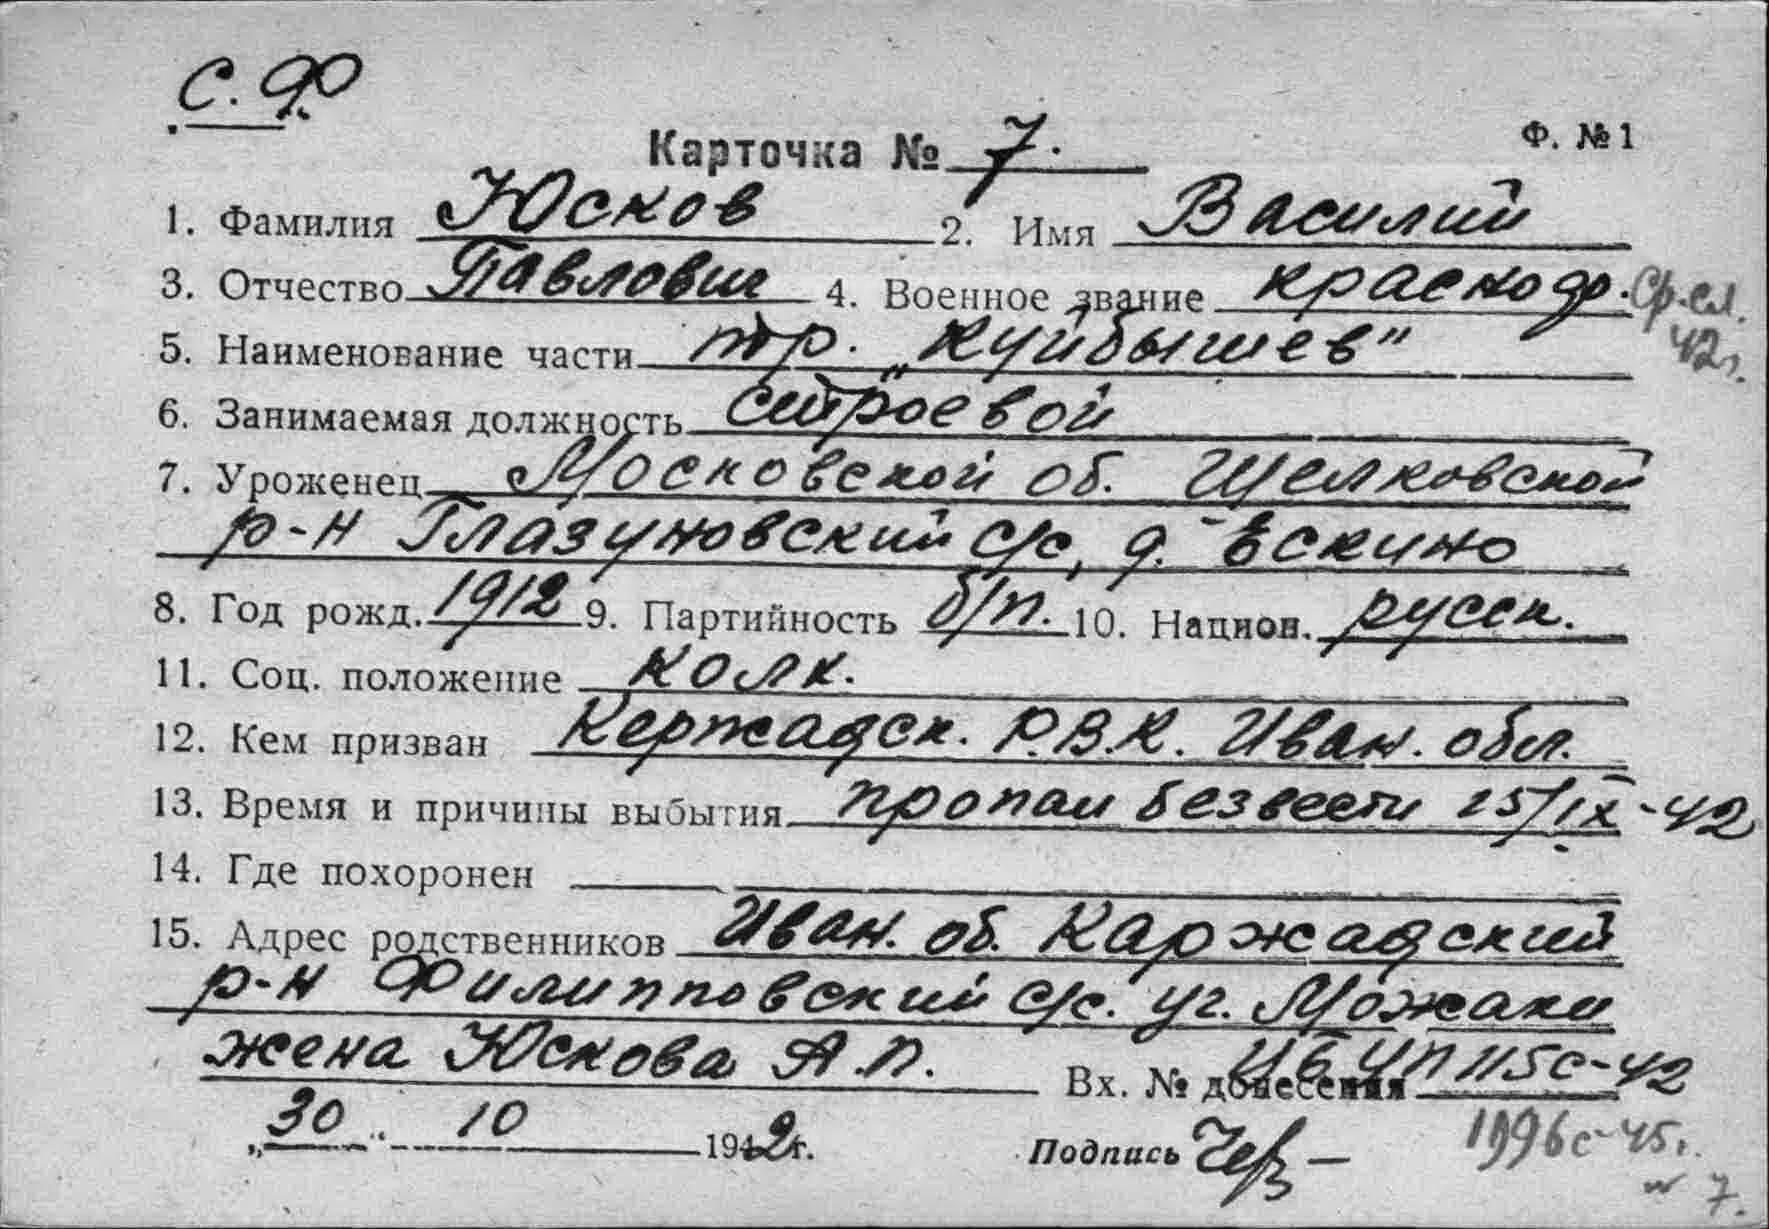 С. Ф.
Карточка № 7.
Ф. № 1
1. Фамилия Юсков 2. Имя Василий
3. Отчество Павлович 4. Военное звание краснофр. Ср. сл. 42г.
5. Наименование части тр. „Куйбышев"
6. Занимаемая должность строевой
7. Уроженец Московской об. Щелковской
р-н Глазуновский с/с, д. Ескино
8. Год рожд. 1912 9. Партийность б/п. 10. Национ. русск.
11. Соц. положение колх.
12. Кем призван Кержадск. Р.В.К. Иван. обл.
13. Время и причины выбытия пропал безвести 25/IX-42
14. Где похоронен
15. Адрес родственников Иван. об. Каржадский
р-н Филипповский с/с. уг. Можаки
жена Юскова А.П. Вх. № донесения ЦБ УП 115с-42
„30" 10 1942г. Подпись 1996с-45г.
7.